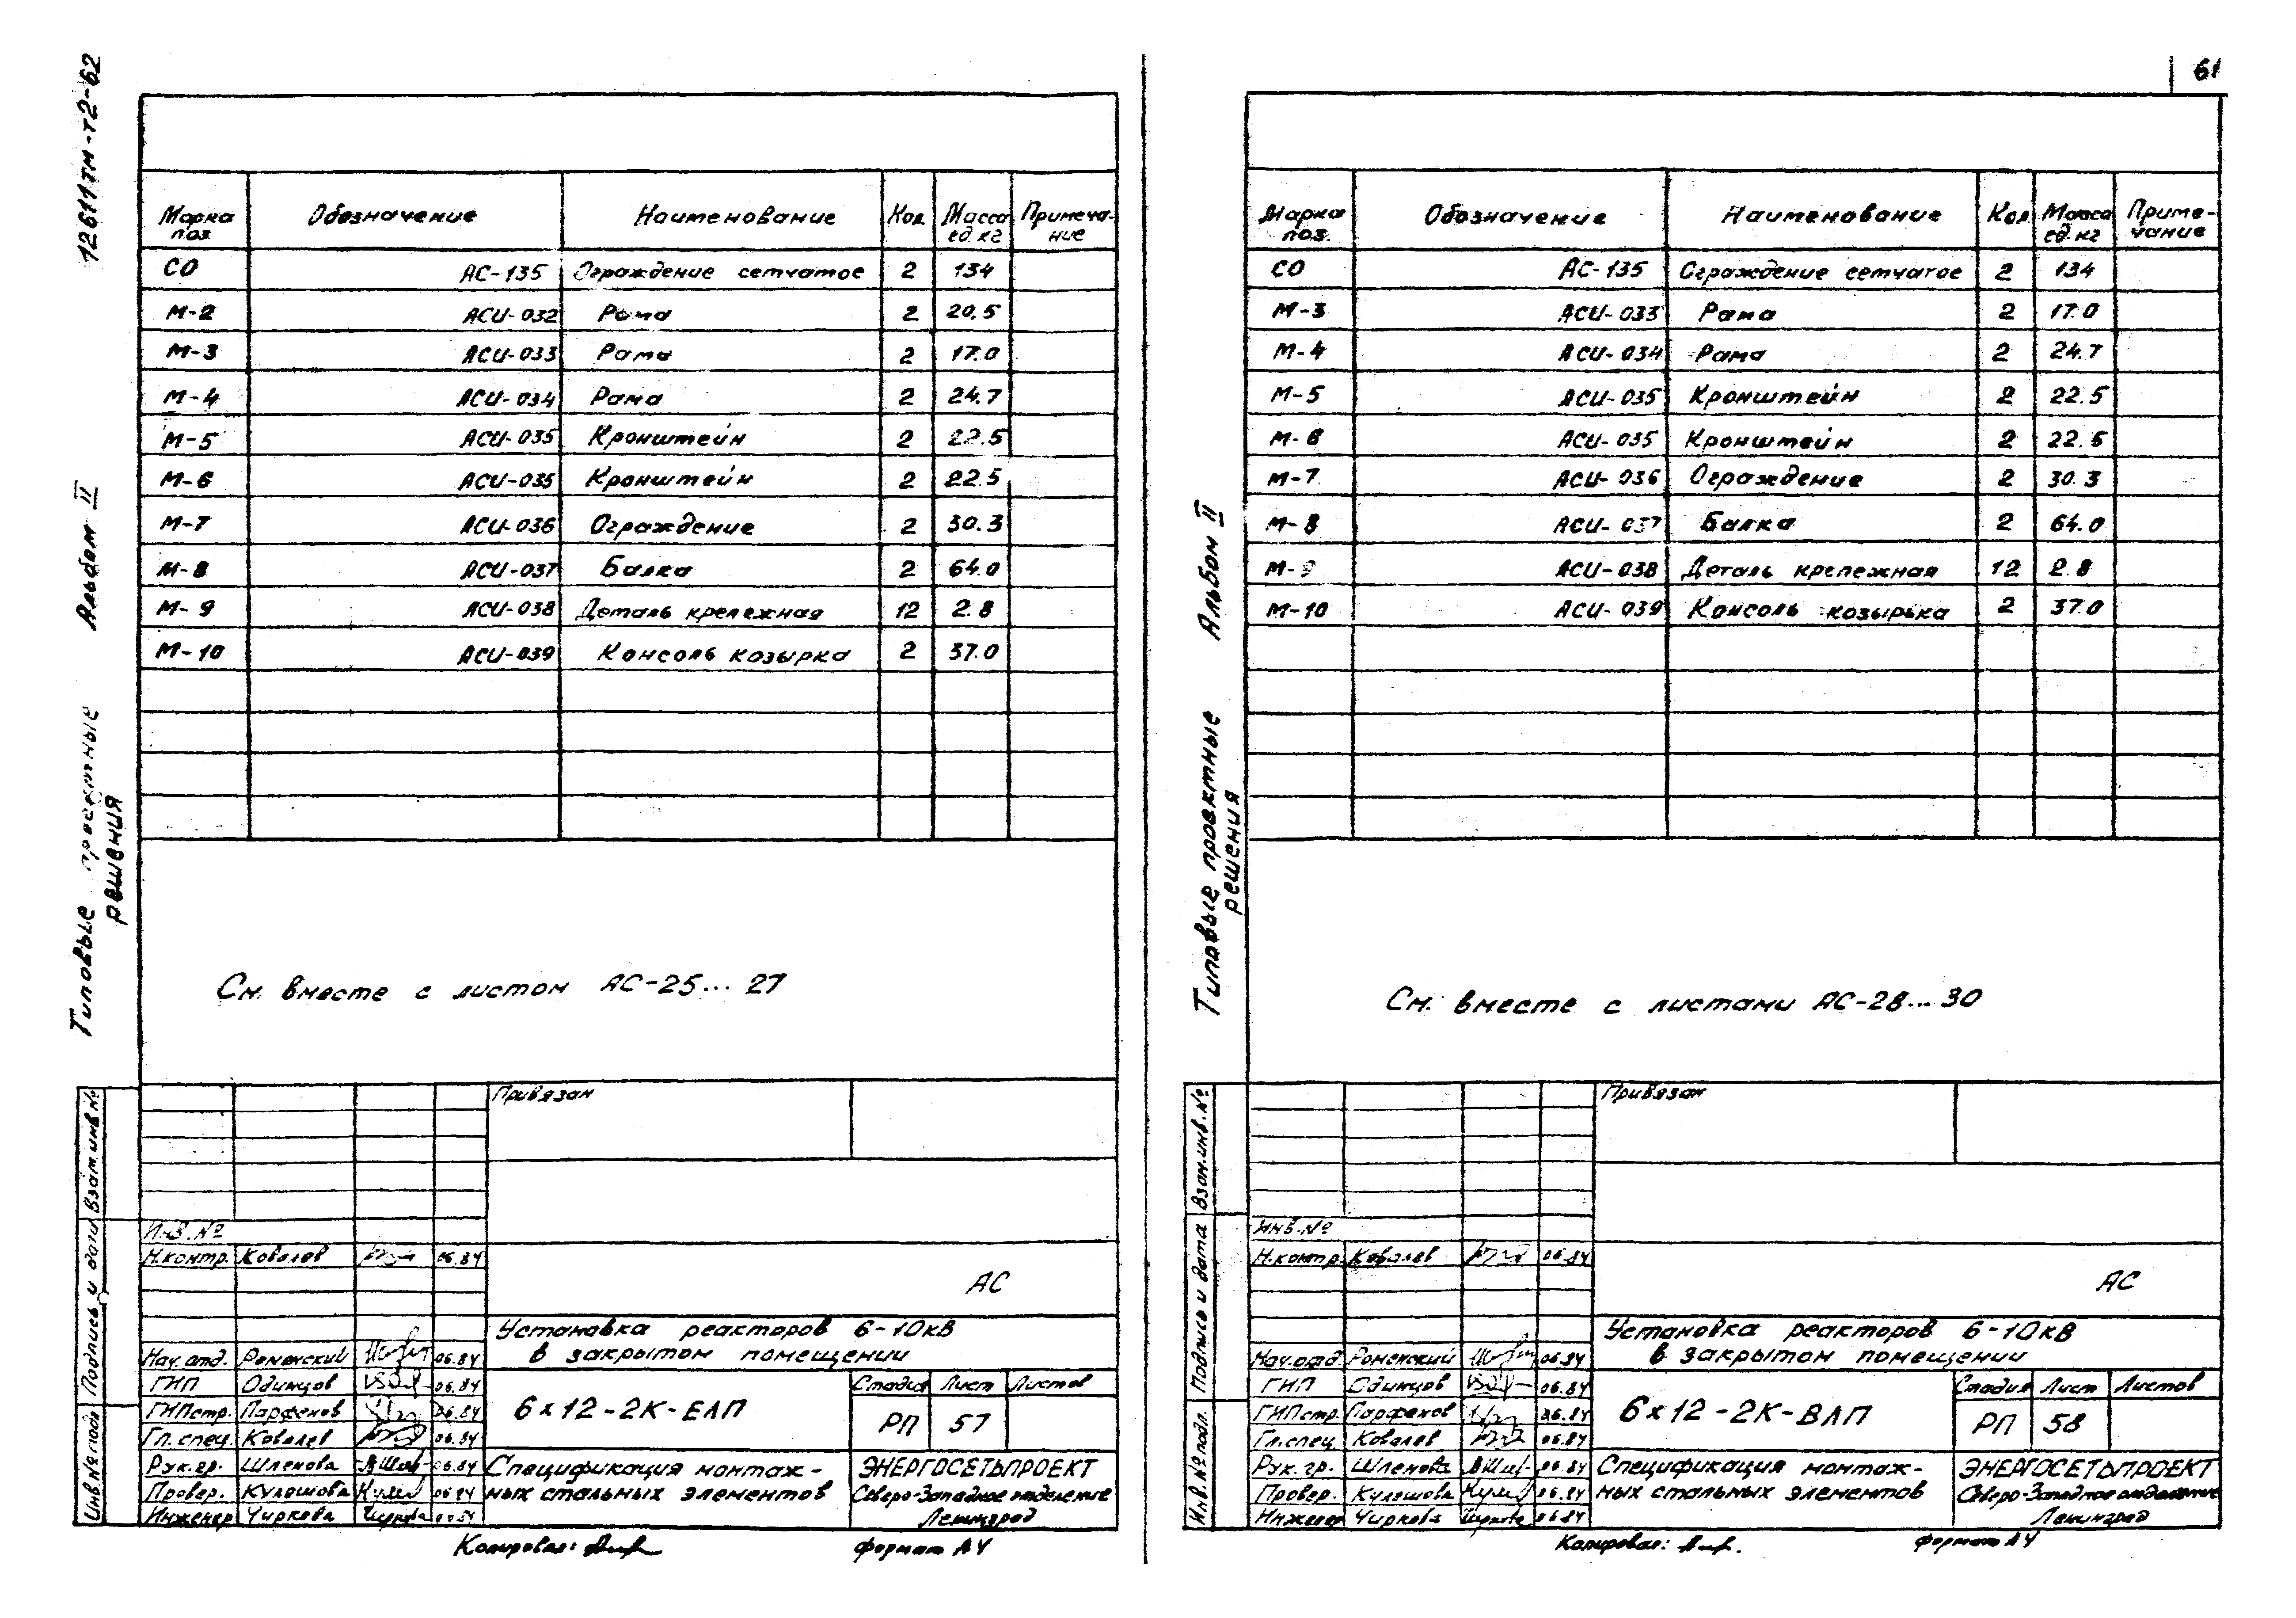 12611тм-т2-62
Альбом II
Типовые проектные
решения
Марка
поз.
Обозначение
Наименование
Кол.
Масса
ед. кг
Примеча-
ние
СО АС-135 Ограждение сетчатое 2 134
М-2 АСИ-032 Рама 2 20.5
М-3 АСИ-033 Рама 2 17.0
М-4 АСИ-034 Рама 2 24.7
М-5 АСИ-035 Кронштейн 2 22.5
М-6 АСИ-035 Кронштейн 2 22.5
М-7 АСИ-036 Ограждение 2 30.3
М-8 АСИ-037 Балка 2 64.0
М-9 АСИ-038 Деталь крепежная 12 2.8
М-10 АСИ-039 Консоль козырка 2 37.0
См. вместе с листом АС-25... 27
Инв № подл Подпись и дата Взам.инв №
Привязан
Инв. №
Н.контр. Ковалев 06.84
АС
Установка реакторов 6-10кВ
в закрытом помещении
Нач.отд. Роменский 06.84
ГИП Одинцов 06.84
ГИПстр. Парфенов 06.84
Гл.спец. Ковалев 06.84
Рук.гр. Шленова 06.84
Провер. Кулошова 06.84
Инженер Чиркова 06.84
6х12-2К-ЕЛП
Стадия Лист Листов
РП 57
Спецификация монтаж-
ных стальных элементов
ЭНЕРГОСЕТЬПРОЕКТ
Северо-Западное отделение
Ленинград
Копировал:
Формат А4
61
Альбом II
Типовые проектные
решения
Марка
поз.
Обозначение
Наименование
Кол
Масса
ед.кг
Приме-
чание
СО АС-135 Ограждение сетчатое 2 134
М-3 АСИ-033 Рама 2 17.0
М-4 АСИ-034 Рама 2 24.7
М-5 АСИ-035 Кронштейн 2 22.5
М-6 АСИ-035 Кронштейн 2 22.5
М-7 АСИ-036 Ограждение 2 30.3
М-8 АСИ-037 Балка 2 64.0
М-9 АСИ-038 Деталь крепежная 12 2.8
М-10 АСИ-039 Консоль козырька 2 37.0
См. вместе с листами АС-28... 30
Инв.№ подл. Подпись и дата Взам.инв.№
Привязан
Инв.№
Н.контр. Ковалев 06.84
АС
Установка реакторов 6-10кВ
в закрытом помещении
Нач.отд. Роменский 06.84
ГИП Одинцов 06.84
ГИПстр. Парфенов 06.84
Гл.спец Ковалев 06.84
Рук.гр. Шленова 06.84
Провер. Кулошова 06.84
Инженер Чиркова 06.84
6х12-2К-ВЛП
Стадия Лист Листов
РП 58
Спецификация монтаж-
ных стальных элементов
ЭНЕРГОСЕТЬПРОЕКТ
Северо-Западное отделение
Ленинград
Копировал:
Формат А4